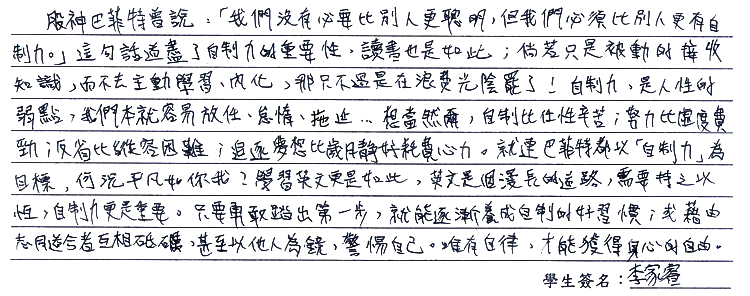 股神巴菲特曾說：「我們沒有必要比別人更聰明，但我們必須比別人更有自
制力。」這句話道盡了自制力的重要性，讀書也是如此；倘若只是被動的接收
知識，而不去主動學習、內化，那只不過是在浪費光陰罷了！自制力，是人性的
弱點，我們本就容易放任、怠惰、拖延…想當然爾，自制比任性辛苦；努力比虛度費
勁；反省比縱容困難；追逐夢想比歲月靜好耗費心力。就連巴菲特都以「自制力」為
目標，何況平凡如你我？學習英文更是如此，英文是個漫長的道路，需要持之以
恆，自制力更是重要。只要勇敢踏出第一步，就能逐漸養成自制的好習慣；或藉由
志同道合者互相砥礪，甚至以他人為鏡，警惕自己。唯有自律，才能獲得身心的自由。
學生簽名：李家睿